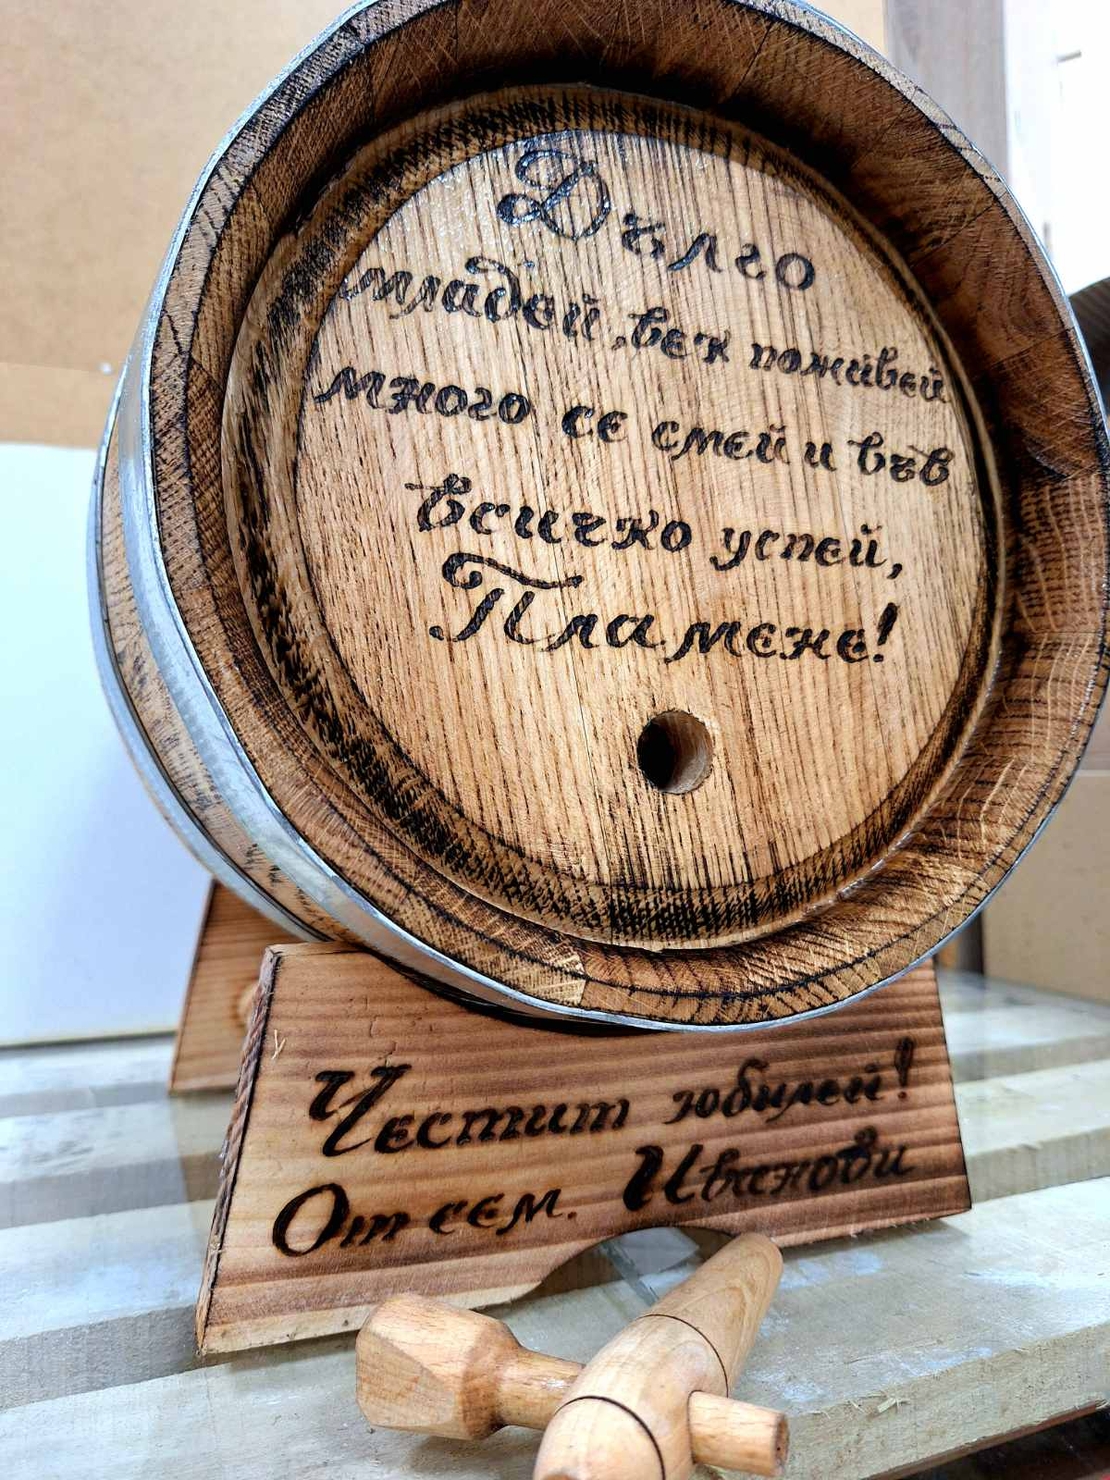 Дълго
младей, век поживей
много се смей и във
всичко успей,
Пламене!
Честит юбилей!
От сем. Иванови